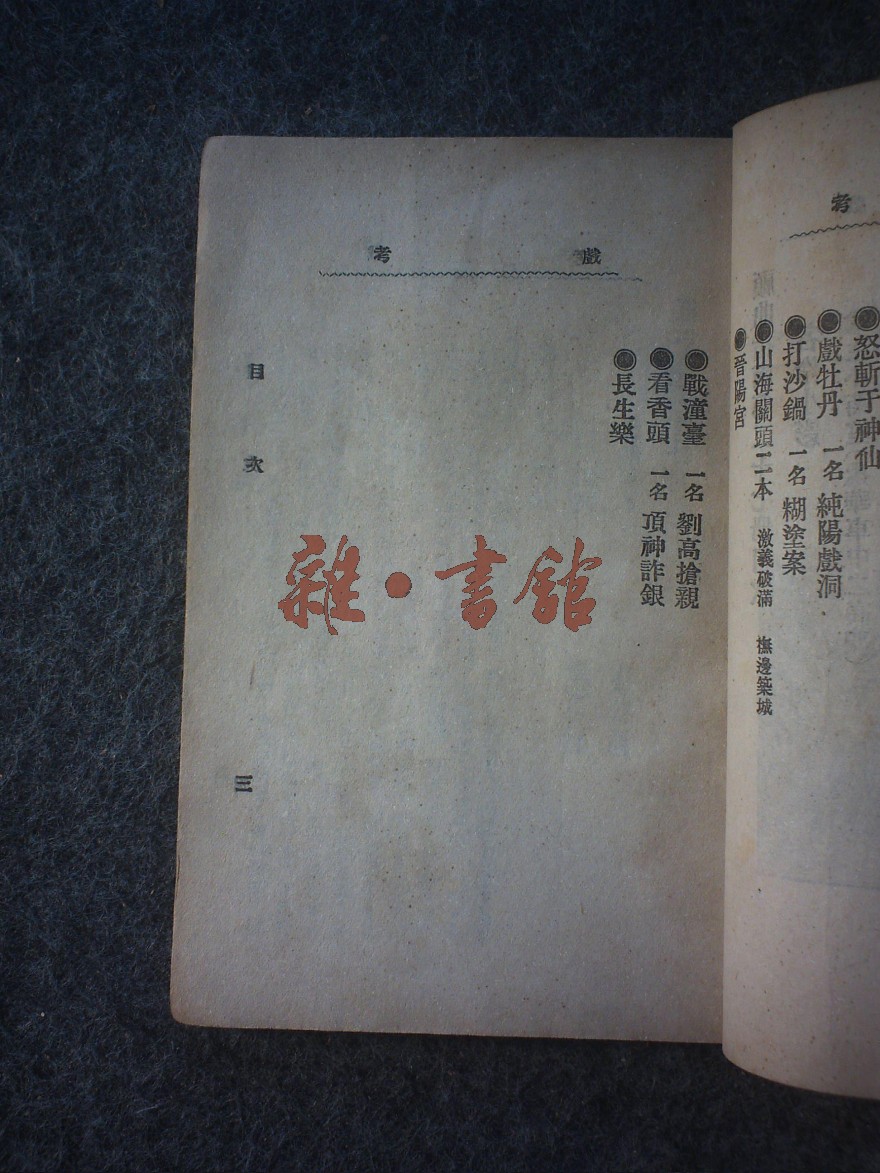 考
怒斬于神仙
戲牡丹 一名 純陽戲洞
打沙鍋 一名 糊塗案
山海關頭二本 激義破滿 撫邊築城
晉陽宮
戲考
戰潼臺 一名 劉高搶親
看香頭 一名 頂神詐銀
長生樂
目次
三
雜·書館